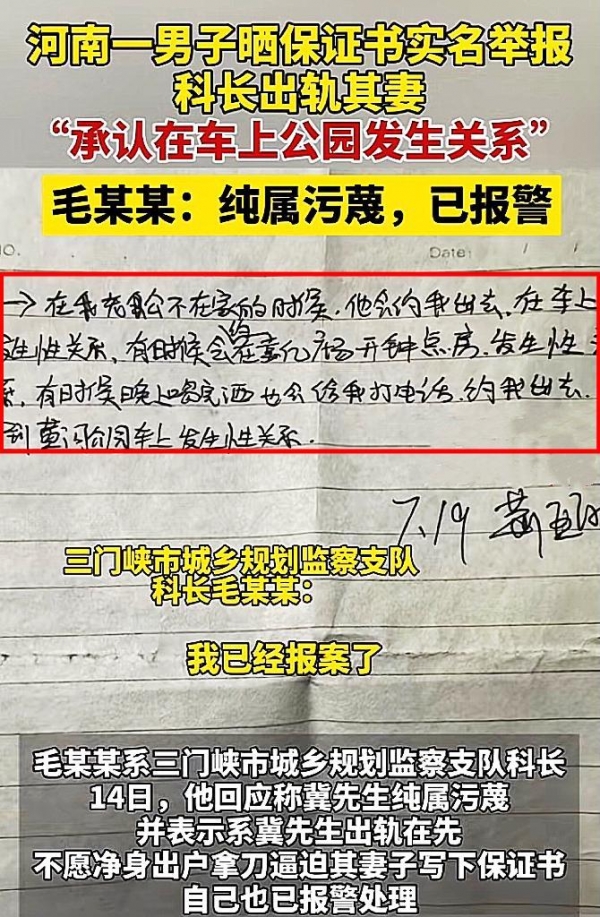 河南一男子晒保证书实名举报
科长出轨其妻
“承认在车上公园发生关系”
毛某某：纯属污蔑，已报警
NO.
Date: / /
→在我老公不在家的时候.他会约我出去.在车上
发生性关系.有时候会约在 广场开钟点房.发生性关
系.有时候晚上喝完酒也会给我打电话.约我出去.
到黄河公园车上发生性关系.
7.19
三门峡市城乡规划监察支队
科长毛某某：
我已经报案了
毛某某系三门峡市城乡规划监察支队科长
14日，他回应称冀先生纯属污蔑
并表示系冀先生出轨在先
不愿净身出户拿刀逼迫其妻子写下保证书
自己也已报警处理